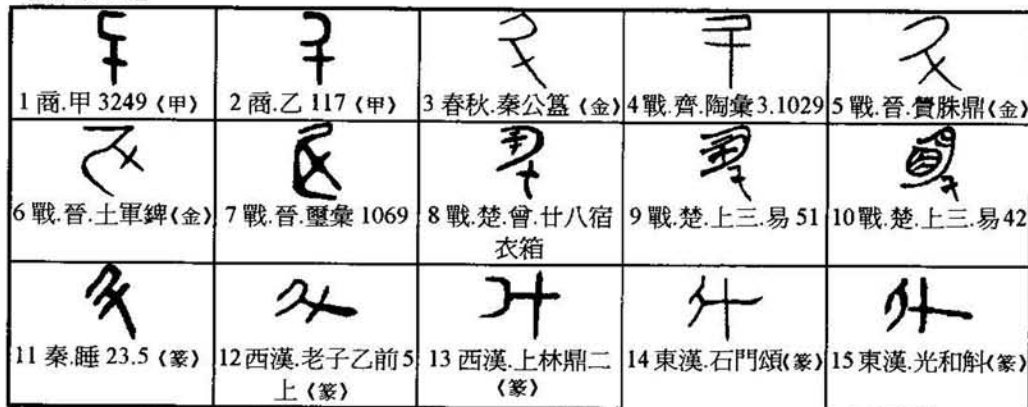 1 商.甲 3249〈甲〉 2 商.乙 117〈甲〉 3 春秋.秦公簋〈金〉 4 戰.齊.陶彙 3.1029 5 戰.晉.贊脒鼎〈金〉
6 戰.晉.土軍錍〈金〉 7 戰.晉.璽彙 1069 8 戰.楚.曾.廿八宿衣箱 9 戰.楚.上三.易 51 10 戰.楚.上三.易 42
11 秦.睡 23.5〈篆〉 12 西漢.老子乙前 5 上〈篆〉 13 西漢.上林鼎二〈篆〉 14 東漢.石門頌〈篆〉 15 東漢.光和斛〈篆〉